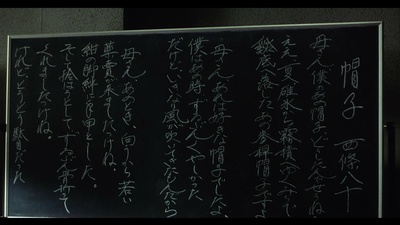 帽子 西條八十
母さん、僕のあの帽子どうしたんでせうね
ええ、夏、碓氷から霧積へゆくみちで
谿底へ落したあの麦稈帽子ですよ
母さん、あれは好きな帽子でしたよ
僕はあの時、ずいぶんくやしかった
だけど、いきなり風が吹いてきたもんだから
母さん、あのとき、向うから若い
薬賣が来ましたっけね。
紺の脚絆に手甲をした。
そして拾はうとして、ずいぶん骨折って
くれましたっけね。
けれどとうとう駄目だった